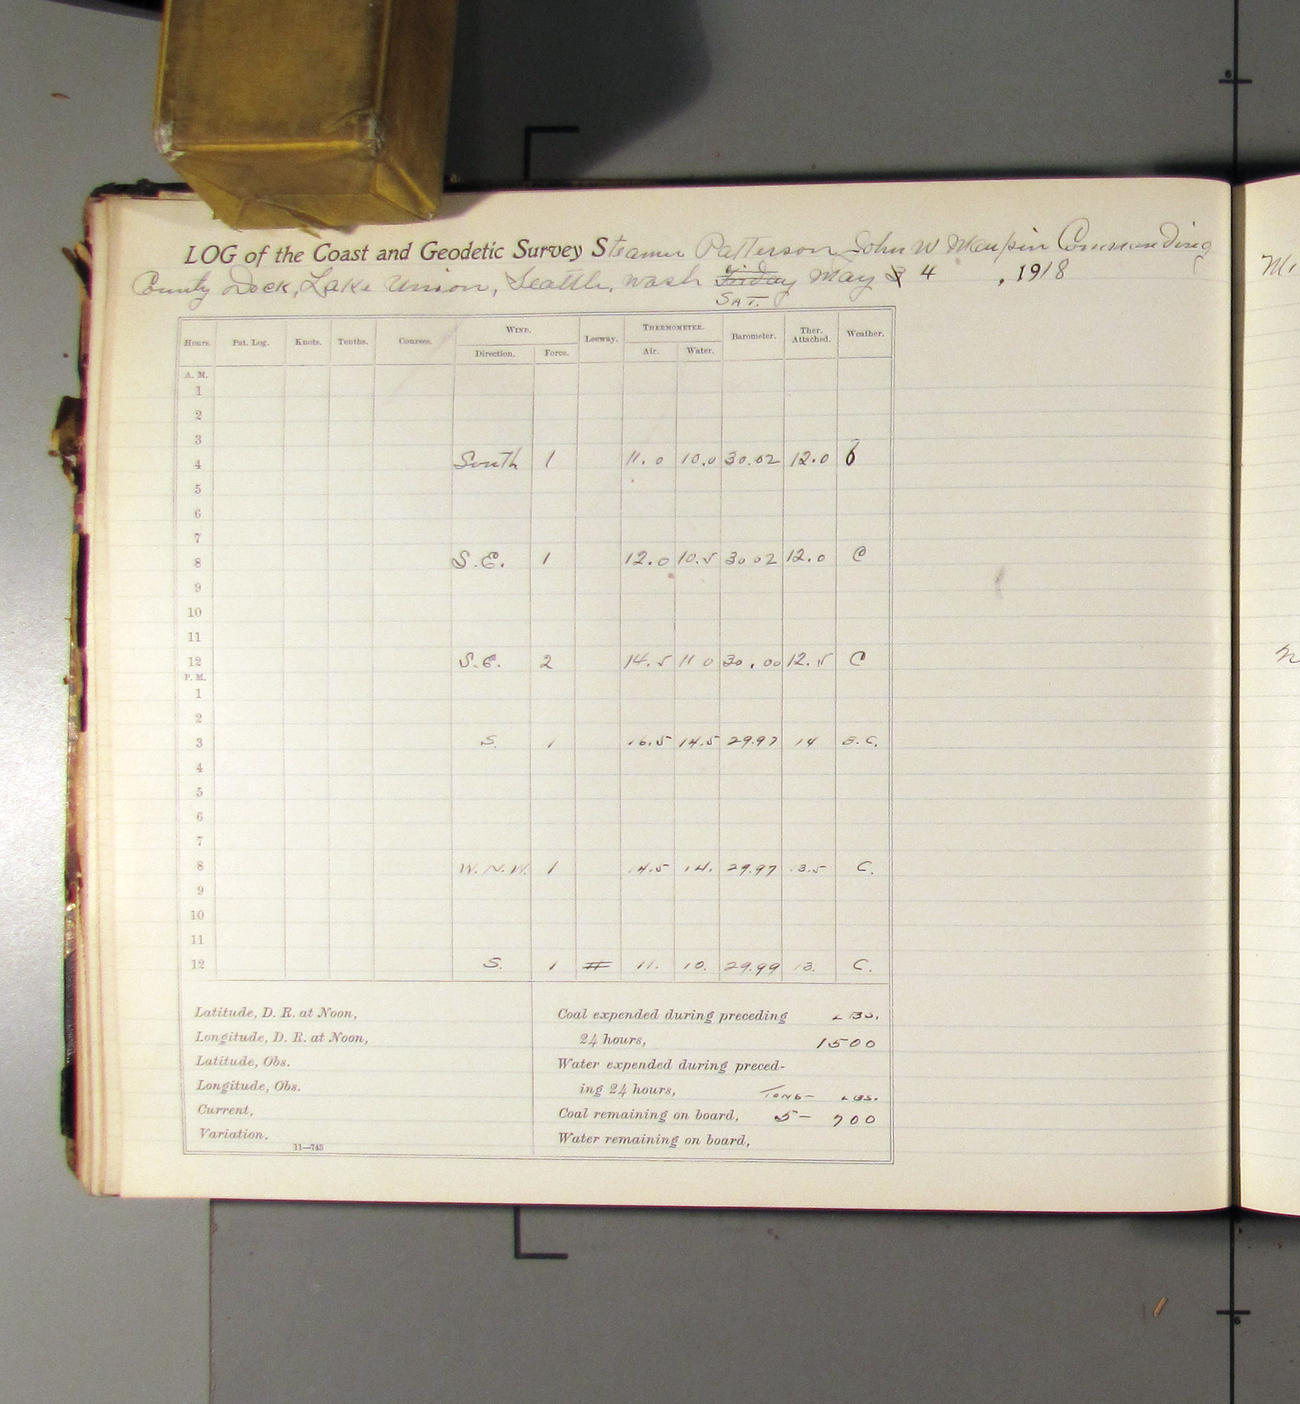 LOG of the Coast and Geodetic Survey Steamer Patterson John W Maupin Commanding
County Dock, Lake Union, Seattle, Wash Friday May 3 4 , 1918
SAT.
Hours. Pat. Log. Knots. Tenths. Courses. WIND. Direction. Force. Leeway. THERMOMETER. Air. Water. Barometer. Ther. Attached. Weather.
A. M.
1
2
3
4 South 1 11.0 10.0 30.02 12.0 b
5
6
7
8 S.E. 1 12.0 10.5 30 02 12.0 C
9
10
11
12 S.E. 2 14.5 11 0 30.00 12.5 C
P. M.
1
2
3 S. 1 16.5 14.5 29.97 14 B.C.
4
5
6
7
8 W.N.W. 1 14.5 14. 29.97 13.5 C.
9
10
11
12 S. 1 11. 10. 29.99 13. C.
Latitude, D. R. at Noon,
Longitude, D. R. at Noon,
Latitude, Obs.
Longitude, Obs.
Current,
Variation,
11—745
Coal expended during preceding LBS.
24 hours, 1500
Water expended during preced-
ing 24 hours, TONS- LBS.
Coal remaining on board, 5- 700
Water remaining on board,
6
6